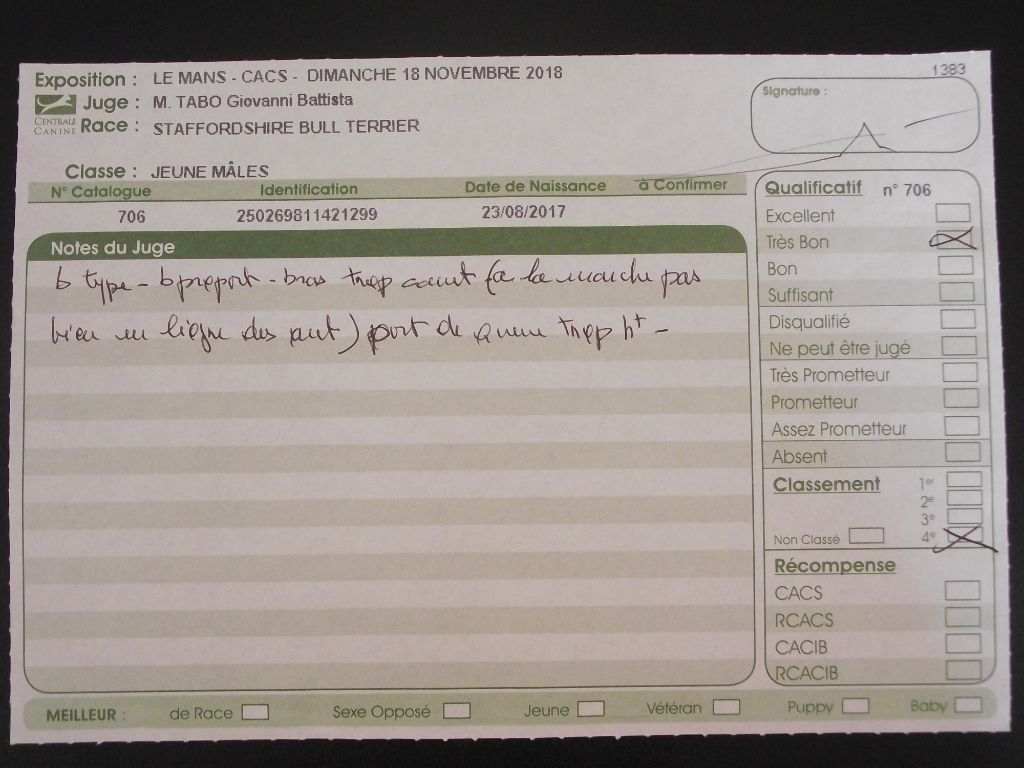 1383
Exposition : LE MANS - CACS - DIMANCHE 18 NOVEMBRE 2018
Juge : M. TABO Giovanni Battista
CENTRALE CANINE
Race : STAFFORDSHIRE BULL TERRIER
Classe : JEUNE MÂLES
N° Catalogue Identification Date de Naissance à Confirmer
706 250269811421299 23/08/2017
Notes du Juge
b type - b proport - bras trop court (à la marche pas
bien en ligne des ant) port de queue trop ht -
Signature :
Qualificatif n° 706
Excellent
Très Bon
Bon
Suffisant
Disqualifié
Ne peut être jugé
Très Prometteur
Prometteur
Assez Prometteur
Absent
Classement 1er
2e
3e
Non Classé 4e
Récompense
CACS
RCACS
CACIB
RCACIB
MEILLEUR : de Race Sexe Opposé Jeune Vétéran Puppy Baby